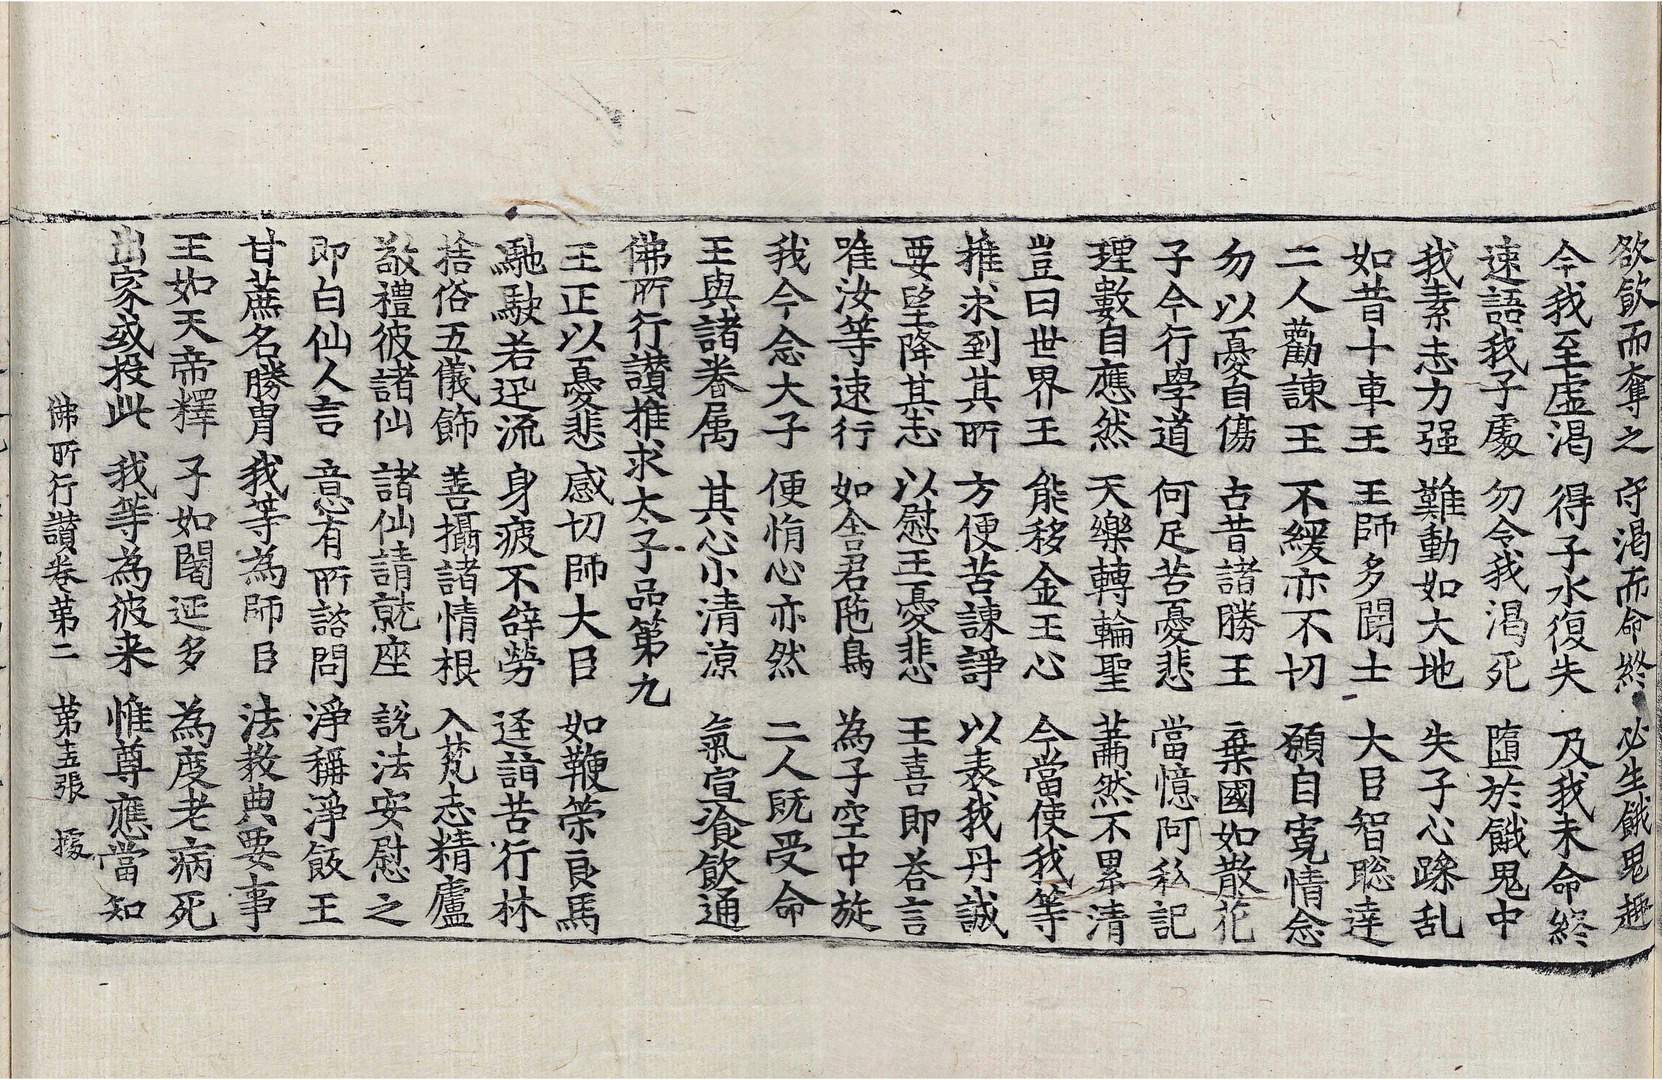 欲飲而奪之 守渴而命終 必生餓鬼趣
今我至虛渴 得子水復失 及我未命終
速語我子處 勿令我渴死 墮於餓鬼中
我素志力强 難動如大地 失子心躁乱
如昔十車王 王師多聞士 大臣智聡達
二人勸諫王 不緩亦不切 願自寬情念
勿以憂自傷 古昔諸勝王 棄國如散花
子今行學道 何足苦憂悲 當憶阿私記
理數自應然 天樂轉輪聖 蕭然不累清
豈曰世界王 能移金玉心 今當使我等
推求到其所 方便苦諫諍 以表我丹誠
要望降其志 以慰王憂悲 王喜即荅言
唯汝等速行 如舍君陁鳥 為子空中旋
我今念太子 便悁心亦然 二人旣受命
王與諸眷属 其心小清涼 氣宣飡飲通
佛所行讃推求太子品第九
王正以憂悲 感切師大臣 如鞭策良馬
馳駛若迅流 身疲不辝勞 逕詣苦行林
捨俗五儀飾 善攝諸情根 入梵志精廬
敬禮彼諸仙 諸仙請就座 說法安慰之
即白仙人言 意有所諮問 淨稱淨飯王
甘蔗名勝胄 我等為師臣 法教典要事
王如天帝釋 子如闍延多 為度老病死
出家或投此 我等為彼来 惟尊應當知
佛所行讃卷第二 第五張